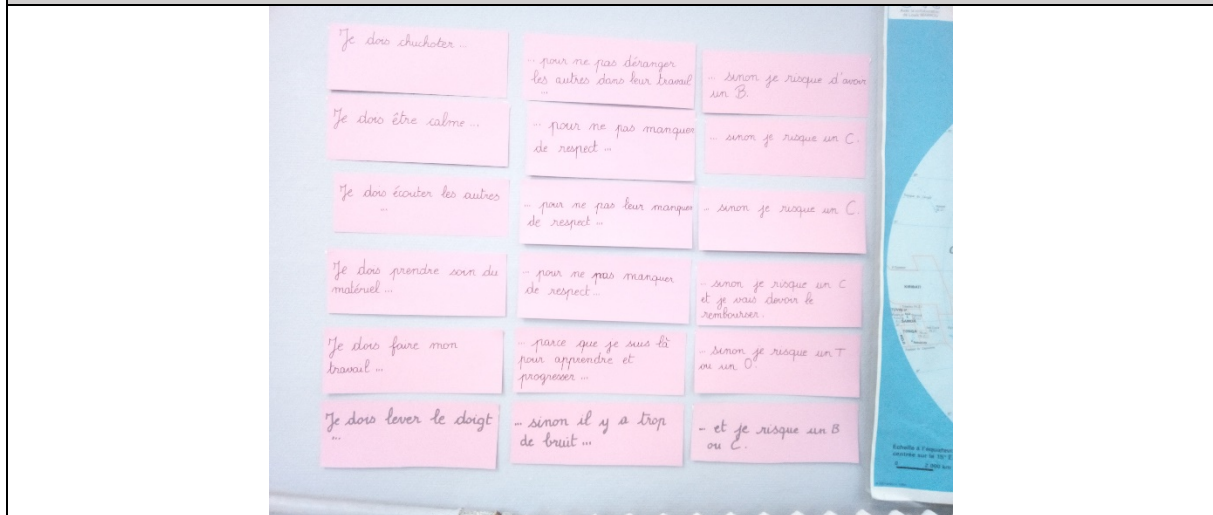 Je dois chuchoter ...
... pour ne pas déranger
les autres dans leur travail
...
... sinon je risque d'avoir
un B.
Je dois être calme ...
... pour ne pas manquer
de respect ...
... sinon je risque un C.
Je dois écouter les autres
...
... pour ne pas leur manquer
de respect ...
... sinon je risque un C.
Je dois prendre soin du
matériel ...
... pour ne pas manquer
de respect ...
... sinon je risque un C
et je vais devoir le
rembourser.
Je dois faire mon
travail ...
... parce que je suis là
pour apprendre et
progresser ...
... sinon je risque un T
ou un O.
Je dois lever le doigt
...
... sinon il y a trop
de bruit ...
... et je risque un B
ou C.